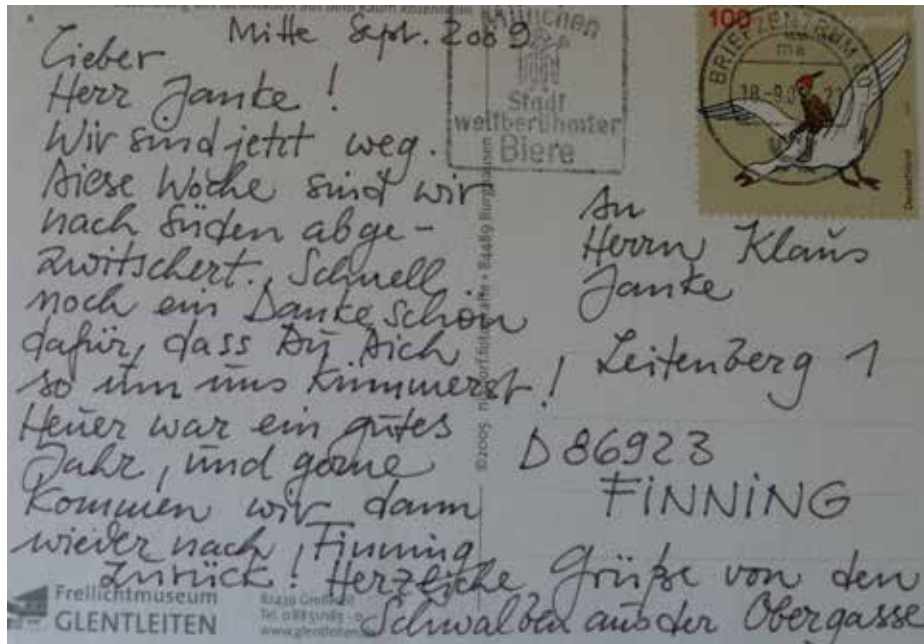 Mitte Sept. 2009
Lieber
Herr Janke !
Wir sind jetzt weg.
Diese Woche sind wir
nach Süden abge-
zwitschert. Schnell
noch ein Dankeschön
dafür, dass Du Dich
so um uns kümmerst !
Heuer war ein gutes
Jahr, und gerne
kommen wir dann
wieder nach Finning
zurück ! Herzliche Grüße von den
Schwalben aus der Obergasse
München
Stadt
weltberühmter
Biere
100
BRIEFZENTRUM
Deutschland
An
Herrn Klaus
Janke
Leitenberg 1
D 86923
FINNING
©2005 84489 Burghausen
Freilichtmuseum
GLENTLEITEN
82439